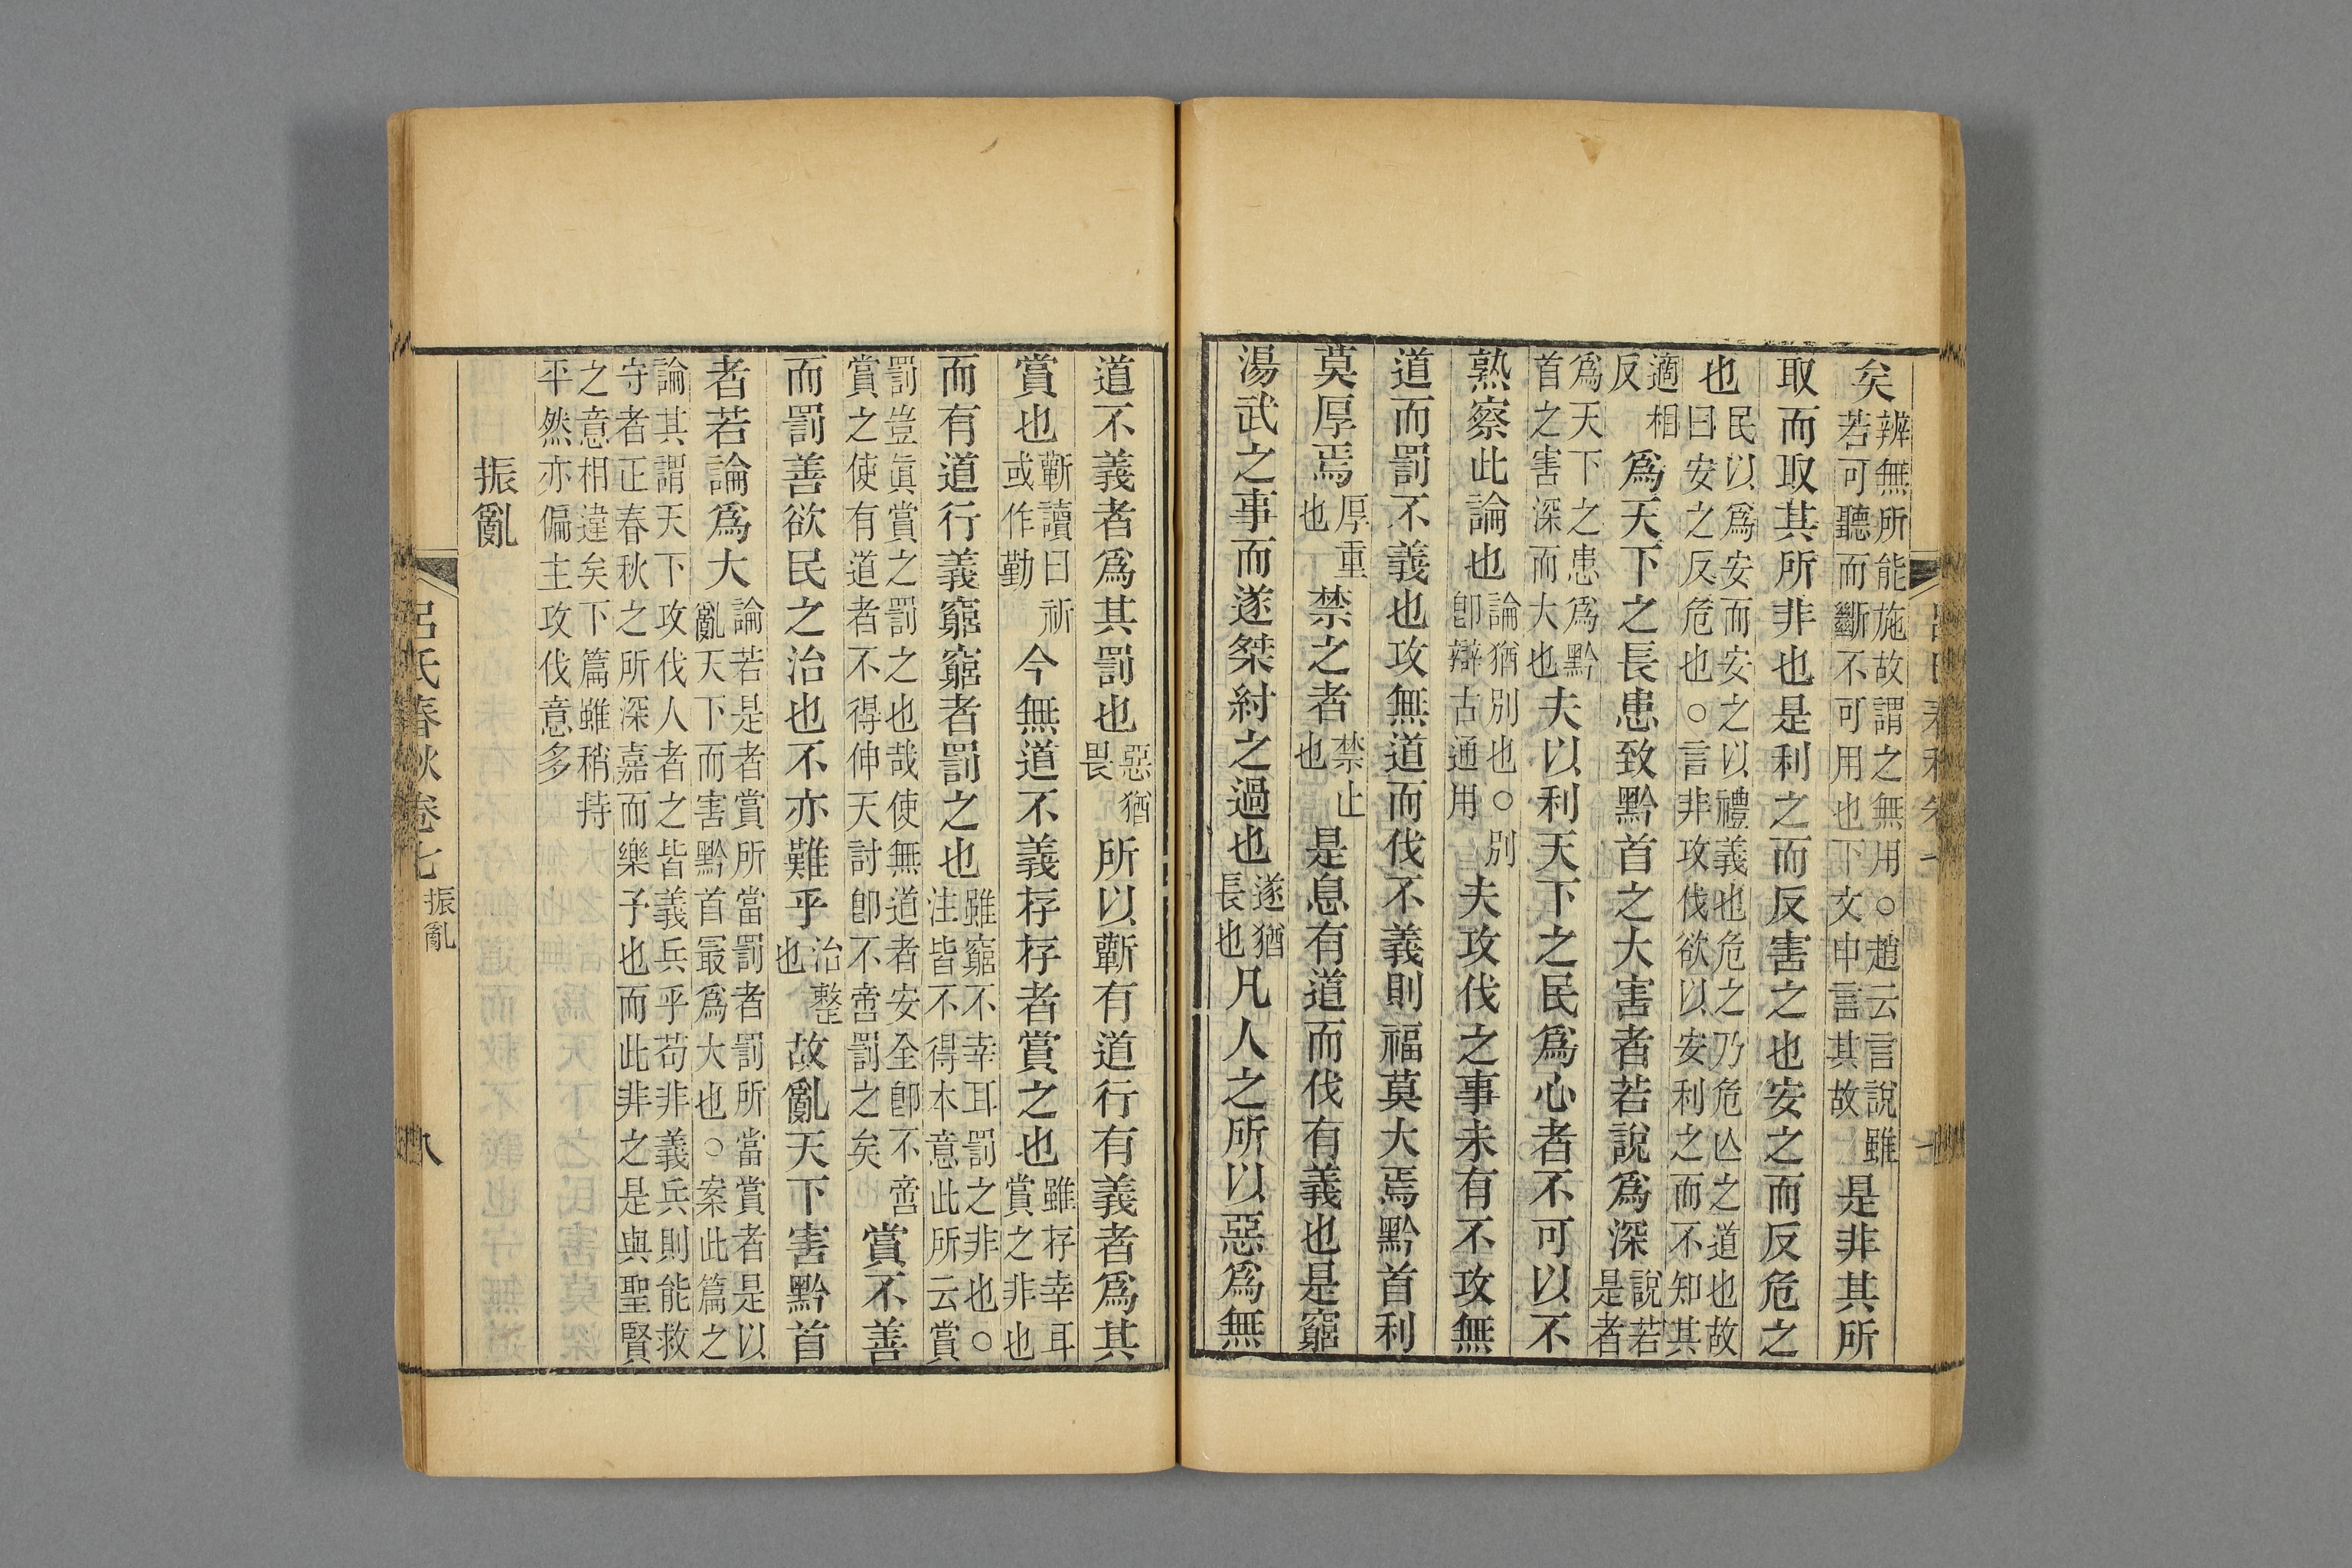 矣辨無所能施故謂之無用○趙云言說雖若可聽而斷不可用也下文申言其故是非其所
取而取其所非也是利之而反害之也安之而反危之
也民以爲安而安之以禮義也危之乃危亾之道也故曰安之反危也○言非攻伐欲以安利之而不知其
適相反爲天下之長患致黔首之大害者若說爲深說若是者
爲天下之患爲黔首之害深而大也夫以利天下之民爲心者不可以不
熟察此論也論猶別也○別卽辯古通用夫攻伐之事未有不攻無
道而罰不義也攻無道而伐不義則福莫大焉黔首利
莫厚焉厚重也禁之者禁止也是息有道而伐有義也是窮
湯武之事而遂桀紂之過也遂猶長也凡人之所以惡爲無
道不義者爲其罰也惡猶畏所以蘄有道行有義者爲其
賞也蘄讀曰祈或作勤今無道不義存存者賞之也雖存幸耳賞之非也
而有道行義窮窮者罰之也雖窮不幸耳罰之非也○注皆不得本意此所云賞
罰豈眞賞之罰之也哉使無道者安全卽不啻賞之使有道者不得伸天討卽不啻罰之矣賞不善
而罰善欲民之治也不亦難乎治整也故亂天下害黔首
者若論爲大論若是者賞所當罰者罰所當賞者是以亂天下而害黔首最爲大也○案此篇之
論其謂天下攻伐人者之皆義兵乎苟非義兵則能救守者正春秋之所深嘉而樂子也而此非之是與聖賢
之意相違矣下篇雖稍持平然亦偏主攻伐意多
振亂
呂氏春秋卷七 振亂 八